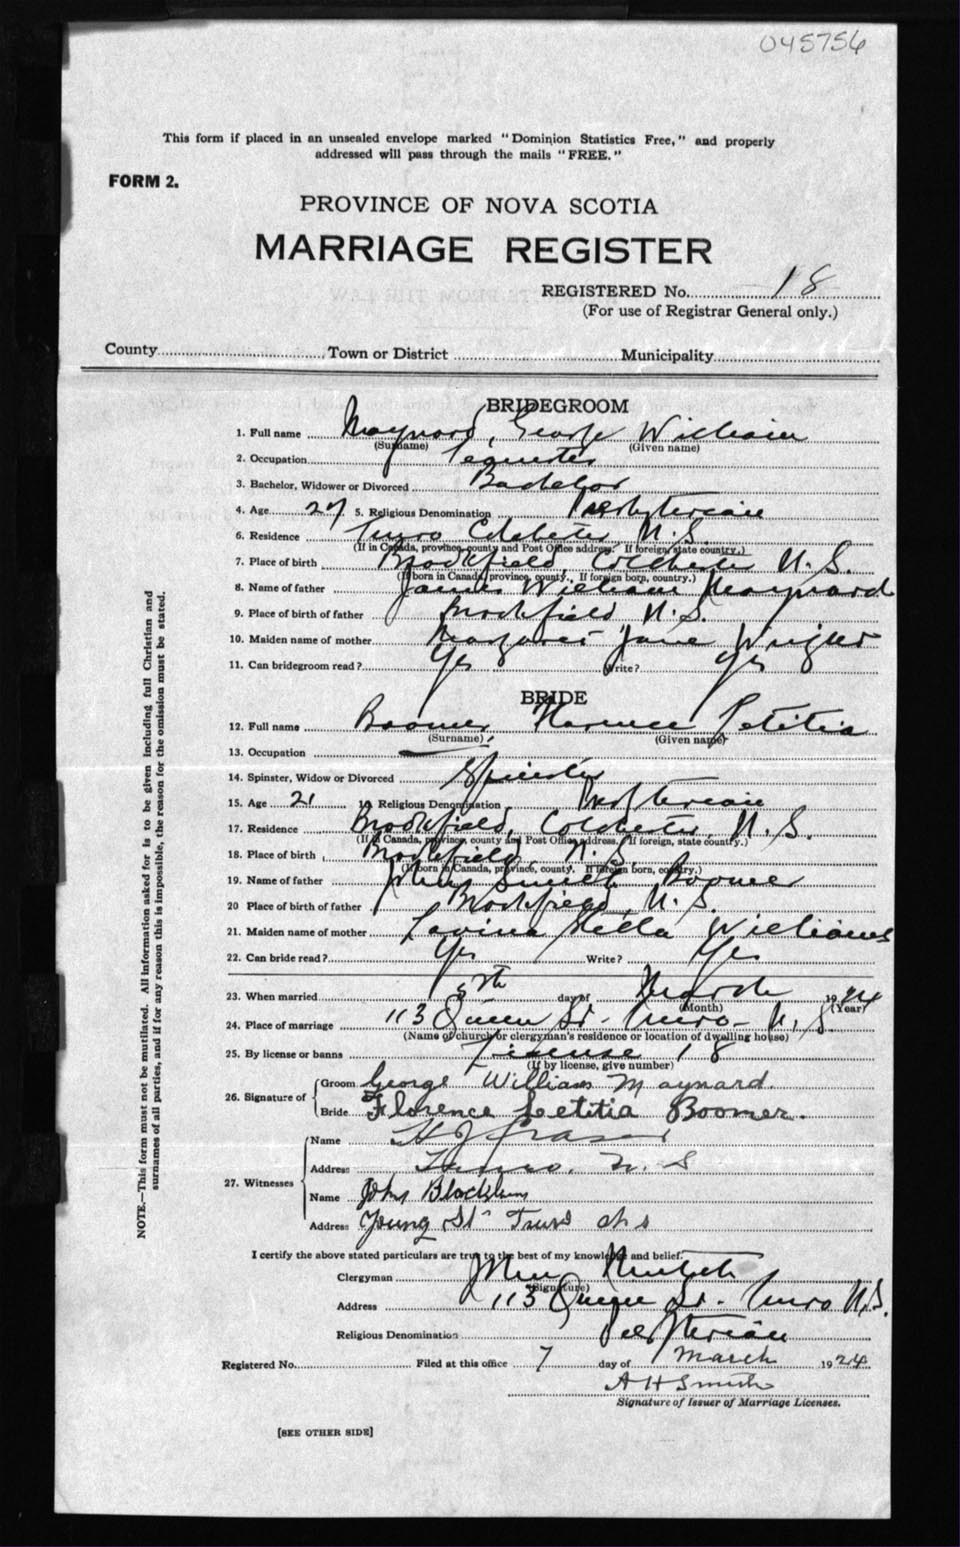 045756
This form if placed in an unsealed envelope marked "Dominion Statistics Free," and properly
addressed will pass through the mails "FREE."
FORM 2.
PROVINCE OF NOVA SCOTIA
MARRIAGE REGISTER
REGISTERED No. 18
(For use of Registrar General only.)
County Town or District Municipality
BRIDEGROOM
1. Full name Maynard, George William
(Surname) (Given name)
2. Occupation
3. Bachelor, Widower or Divorced Bachelor
4. Age 27 5. Religious Denomination Presbyterian
6. Residence Truro Colchester N.S.
(If in Canada, province, county and Post Office address. If foreign, state country.)
7. Place of birth Brookfield Colchester N.S.
(If born in Canada, province, county., If foreign born, country.)
8. Name of father James William Maynard
9. Place of birth of father Brookfield N.S.
10. Maiden name of mother Margaret Jane
11. Can bridegroom read? Yes Write? Yes
BRIDE
12. Full name Boomer, Florence Letitia
(Surname) (Given name)
13. Occupation —
14. Spinster, Widow or Divorced Spinster
15. Age 21 16 Religious Denomination Presbyterian
17. Residence Brookfield, Colchester, N.S.
(If in Canada, province, county and Post Office address. If foreign, state country.)
18. Place of birth Brookfield, N.S.
(If born in Canada, province, county. If foreign born, country.)
19. Name of father John Smith Boomer
20 Place of birth of father Brookfield, N.S.
21. Maiden name of mother Lavina Stella Williams
22. Can bride read? Yes Write? Yes
23. When married 5th day of March 1924
(Month) (Year)
24. Place of marriage 113 Queen St. Truro N.S.
(Name of church or clergyman's residence or location of dwelling house)
25. By license or banns License 18
(If by license, give number)
26. Signature of Groom George William Maynard.
Bride Florence Letitia Boomer.
27. Witnesses
Name H J Fraser
Address Truro, N. S
Name John Blackburn
Address Young St Truro N S
I certify the above stated particulars are true to the best of my knowledge and belief.
Clergyman John
(Signature)
Address 113 Queen St. Truro N.S.
Religious Denomination Presbyterian
Registered No. Filed at this office 7 day of March 1924
A H Smith
Signature of Issuer of Marriage Licenses.
[SEE OTHER SIDE]
NOTE.—This form must not be mutilated. All information asked for is to be given including full Christian and
surnames of all parties, and if for any reason this is impossible, the reason for the omission must be stated.